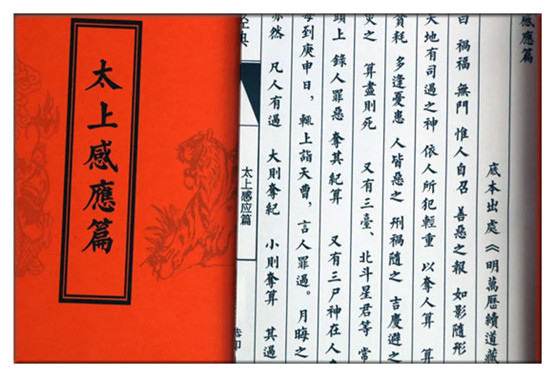 太上感應篇
感應篇
底本出處《明萬歷續道藏
曰 禍福 無門 惟人自召 善惡之報 如影隨形
天地有司過之神 依人所犯輕重 以奪人算 算
貧耗 多逢憂患 人皆惡之 刑禍隨之 吉慶避之
災之 算盡則死 又有三臺、北斗星君等 常
頭上 錄人罪惡 奪其紀算 又有三尸神在人
每到庚申日，輒上詣天曹，言人罪過。月晦之
亦然 凡人有過 大則奪紀 小則奪算 其過
經典
太上感应篇